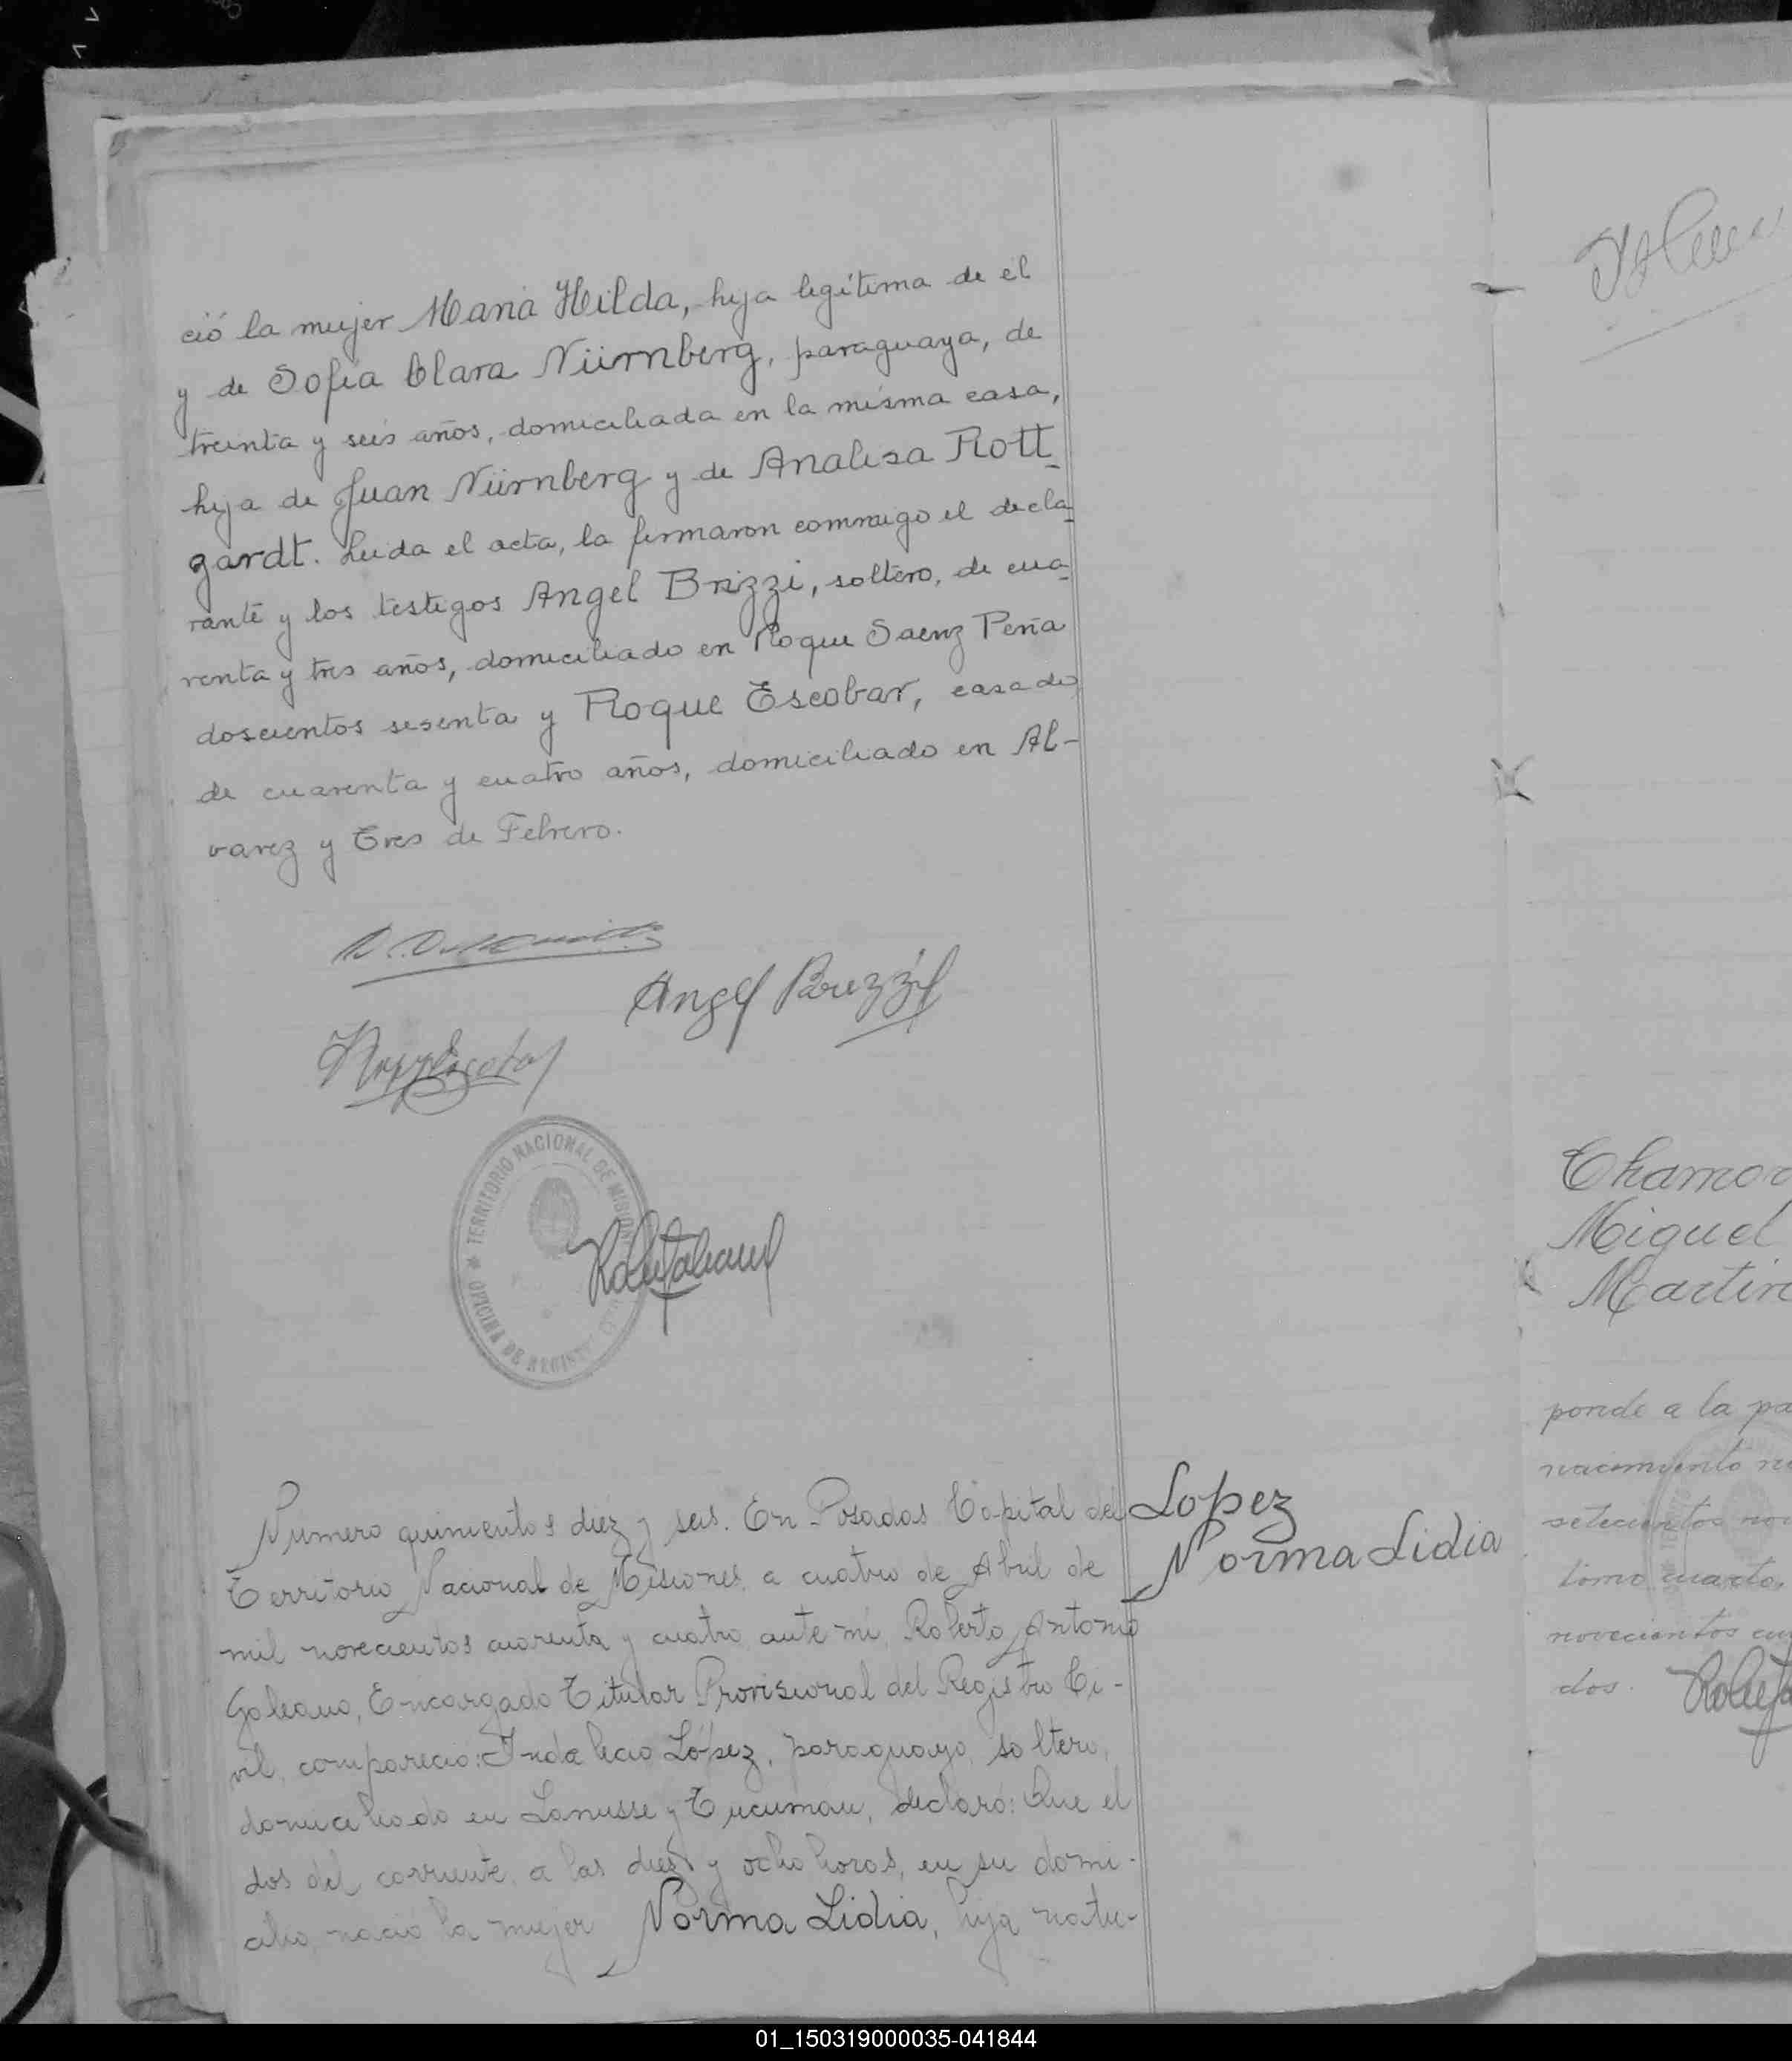 ció la mujer Maria Hilda, hija legítima de él
y de Sofía Clara Nürnberg, paraguaya, de
treinta y seis años, domiciliada en la misma casa,
hija de Juan Nürnberg y de Analisa Rott_
gardt. Leida el acta, la firmaron conmigo el decla_
rante y los testigos Angel Brizzi, soltero, de cua_
renta y tres años, domiciliado en Roque Saenz Peña
doscientos sesenta y Roque Escobar, casado
de cuarenta y cuatro años, domiciliado en Al-
varez y Tres de Febrero.
Angel Brizzi
TERRITORIO NACIONAL DE MISIONES
OFICINA DE REGISTRO
Numero quinientos diez y seis. En Posadas Capital del
Territorio Nacional de Misiones, a cuatro de Abril de
mil novecientos cuarenta y cuatro, ante mi, Roberto Antonio
Galeano, Encargado Titular Provisional del Registro Ci-
vil, comparecio: Indalecio López, paraguayo, soltero,
domiciliado en Lanusse y Tucuman, declaró: Que el
dos del corriente, a las diez y ocho horas, en su domi-
cilio, nació la mujer Norma Lidia, hija natu-
Lopez
Norma Lidia
Miguel
ponde a la
nacimiento
setecientos
tomo cuarto,
novecientos
dos.
01_150319000035-041844